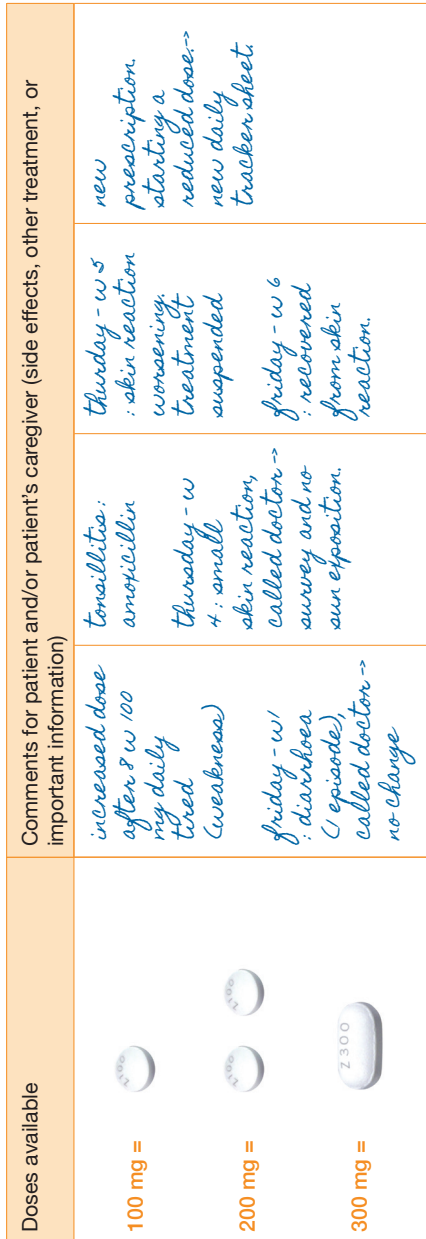 Doses available
100 mg =
Z100
200 mg =
Z100
Z100
300 mg =
Z300
Comments for patient and/or patient's caregiver (side effects, other treatment, or
important information)
increased dose
after 8 w 100
mg daily
tired
(weakness)
friday - w1
: diarrhoea
(1 episode),
called doctor ->
no change
tonsillitis:
amoxicillin
thursday - w
4: small
skin reaction,
called doctor ->
survey and no
sun exposition.
thurday - w5
: skin reaction
worsening.
treatment
suspended
friday - w 6
: recovered
from skin
reaction.
new
prescription.
starting a
reduced dose.->
new daily
tracker sheet.